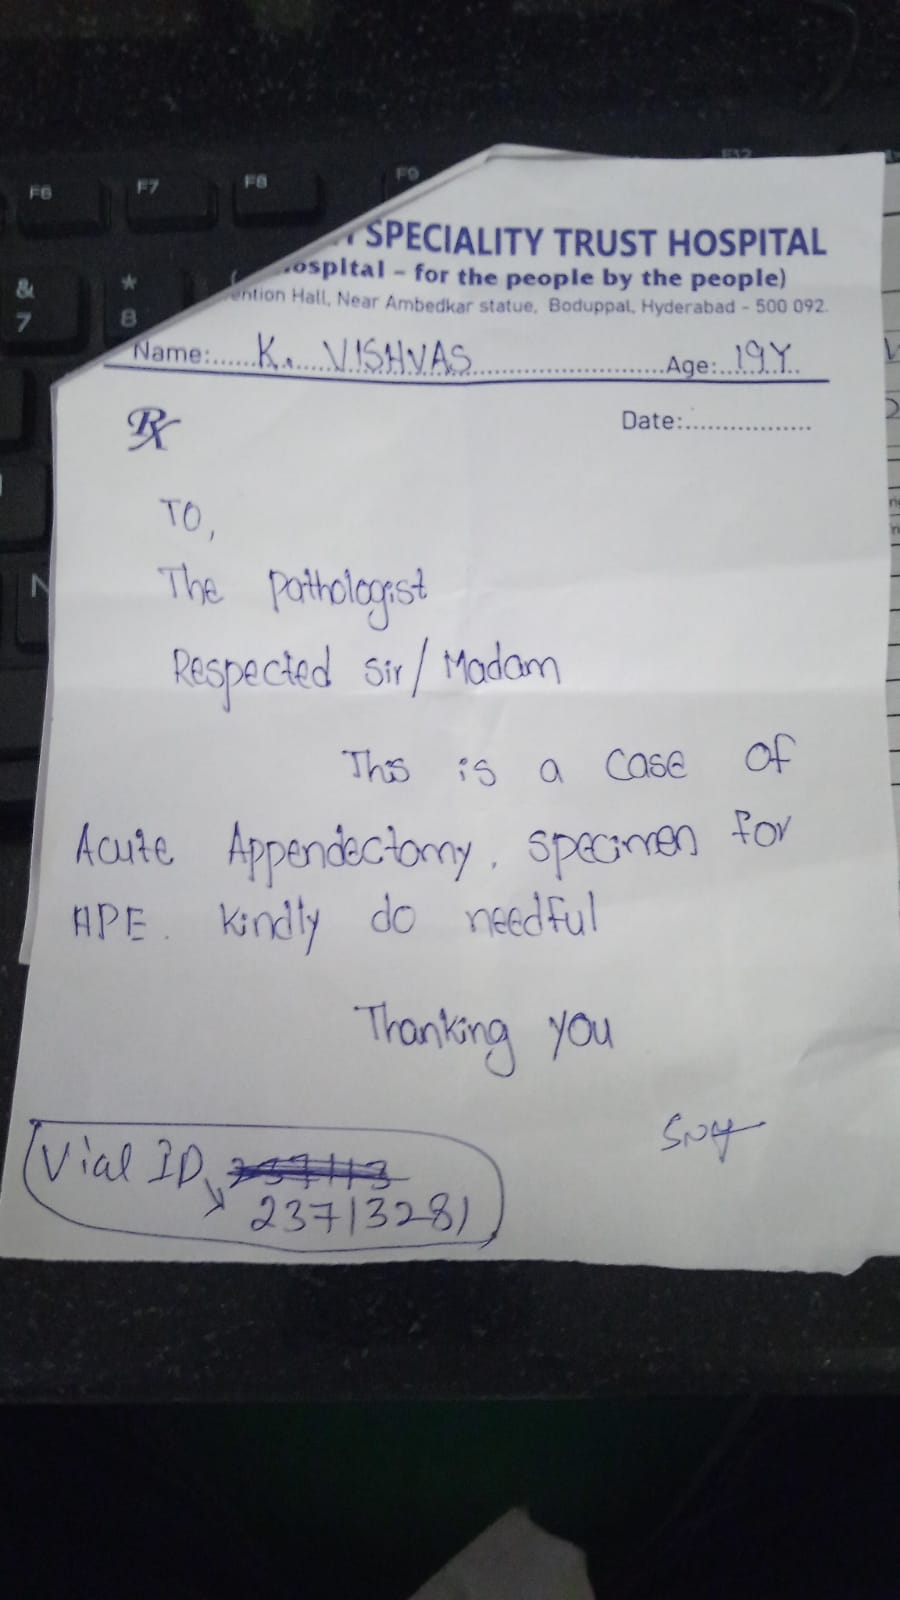 SPECIALITY TRUST HOSPITAL
ospital – for the people by the people)
ention Hall, Near Ambedkar statue, Boduppal, Hyderabad - 500 092.
Name:......K. VISHVAS..............................Age:..19Y..
Rx
Date:..................
TO,
The Pathologist
Respected Sir/Madam
This is a case of
Acute Appendectomy, specimen for
HPE. Kindly do needful
Thanking you
Vial ID
23713281
F6
F7
F8
F9
F12
&
7
*
8
(
N